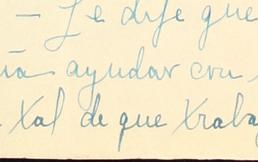 — Le dije que
ía ayudar con
xal de que xraba